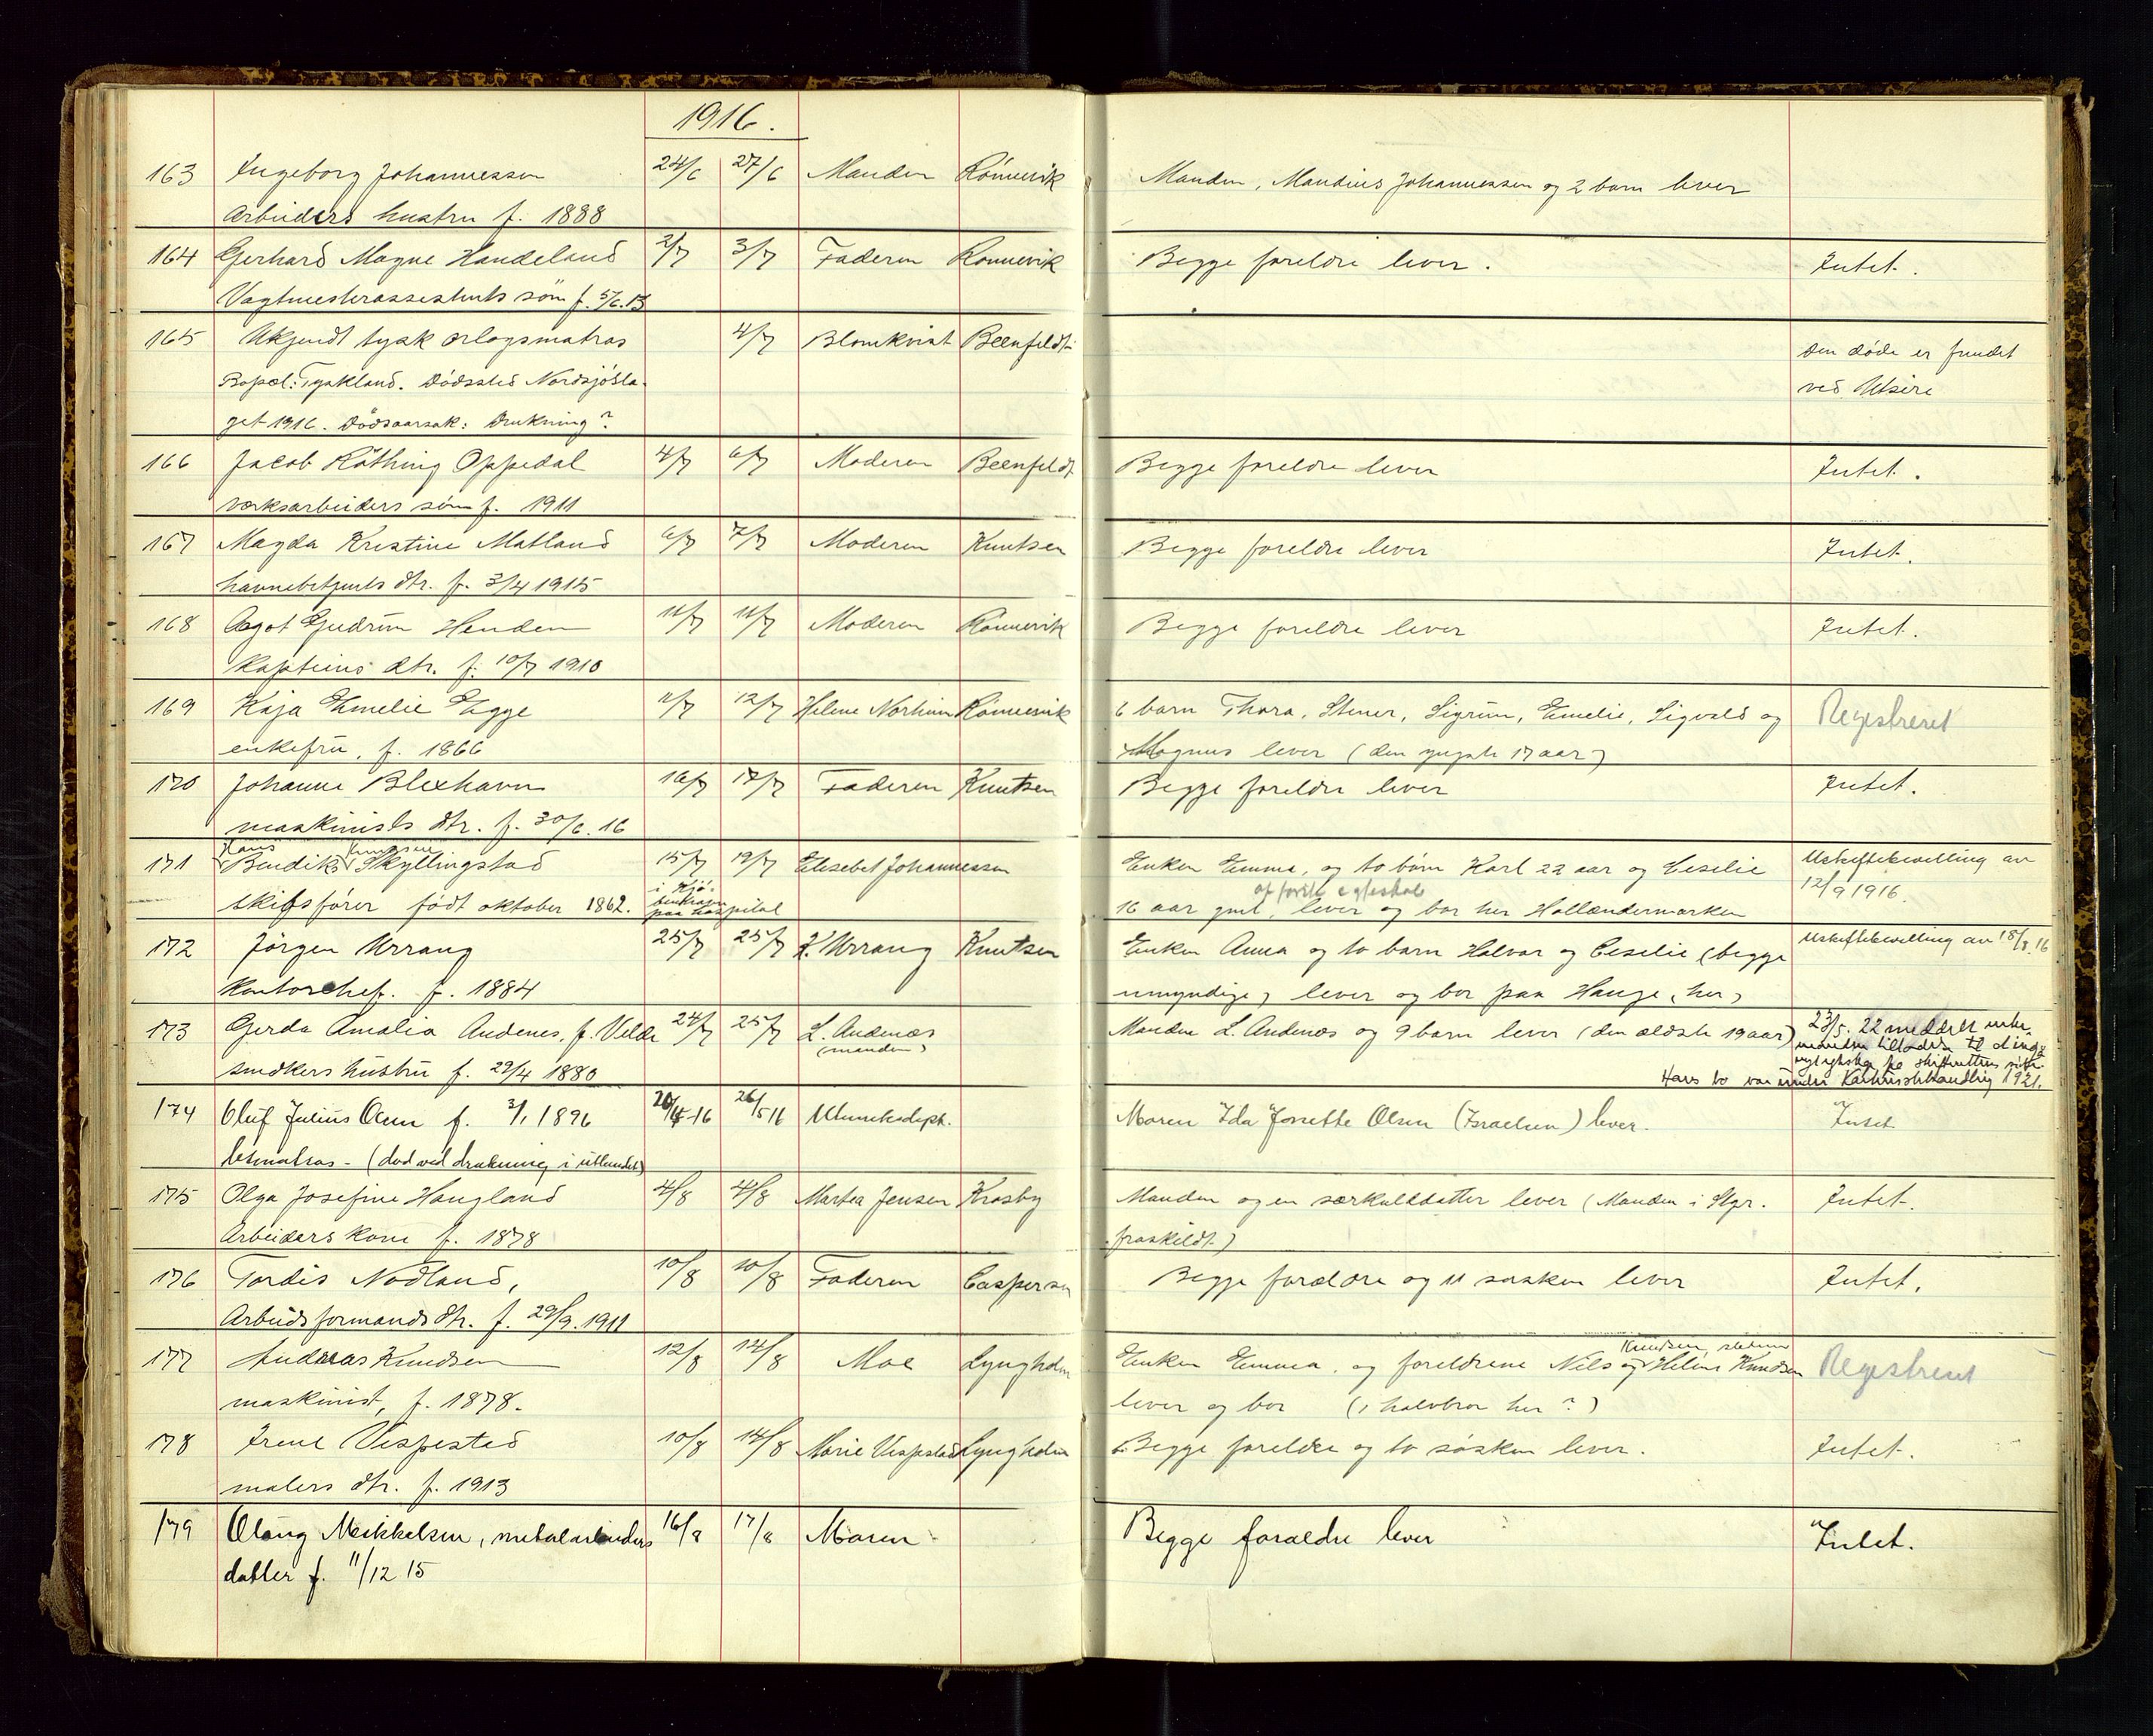 1916.
163 Ingeborg Johannessen 24/6 27/6 Manden Rönnevik Manden, Mandius Johannessen og 2 barn lever
Arbeiders hustru f. 1888
164 Gerhard Magne Handeland 2/7 3/7 Faderen Rönnevik Begge foreldre lever. Intet.
Vagtmesterassistents sön f. 5/6.13
165 Ukjendt tysk orlogsmatros 4/7 Blomkvist Beenfeldt Den döde er fundet
Bopæl: Tyskland. Dödssted Nordsjösla- ved Utsire
get 1916. Dödsaarsak: Drukning?
166 Jacob Röthing Oppedal 4/7 6/7 Moderen Beenfeldt Begge foreldre lever Intet.
verksarbeiders sön f. 1911
167 Magda Kristine Matland 6/7 7/7 Moderen Knutsen Begge foreldre lever Intet.
havnebetjents dtr. f. 3/4 1915
168 Aagot Gudrun Henden 11/7 11/7 Moderen Rönnevik Begge foreldre lever Intet.
Kapteins dtr. f. 10/7 1910
169 Kaja Emelie Egge 11/7 12/7 Helene Northun Rönnevik 6 barn Thora, Stener, Sigrun, Emelie, Sigvald og Registreret
enkefru, f. 1866 Magnus lever (den yngste 17 aar)
170 Johanne Blexhavn 16/7 17/7 Faderen Knutsen Begge foreldre lever Intet.
maskinists dtr. f. 30/6.16
Hans
171 Bendik Skyllingstad 15/7 19/7 Elisebet Johannessen Enken Emma, og to börn Karl 22 aar og Ceselie Uskiftebevilling av
i Kjö-
benhavn
paa hospital
af förste egteskab 12/9 1916.
skibsförer födt oktober 1862. 16 aar gml, lever og bor her Hollændermarken
172 Jörgen Urrang 25/7 25/7 K. Urrang Knutsen Enken Anna og to barn Halvar og Ceselie (begge Uskiftebevilling av 18/8.16
Kontorchef. f. 1884 umyndige) lever og bor paa Hauge, her)
173 Gerda Amalia Andenes, f. Velde 24/7 25/7 L. Andenæs Manden L. Andenæs og 9 barn lever (den ældste 19 aar) 23/5.22 meddelt enke-
(manden) manden tilladelse til at indgaa
snedkers hustru f. 29/4 1880
Hans bo var under Konkursbehandling 1921.
174 Oluf Julius Olsen f. 3/1 1896 20/4-16 26/5 16 Utenriksdept. Maren Ida Josette Olsen (Israelsen) lever. Intet
letmatros - (död ved drukning i utlandet)
175 Olga Josefine Haugland 4/8 4/8 Martea Jensen Krosby Manden og en særkulddatter lever (Manden i Stgr. Intet.
Arbeiders kone f. 1878 fraskildt)
176 Tordis Nodland, 10/8 10/8 Faderen Caspersen Begge forældre og 11 søsken lever Intet.
Arbeidsformands dtr. f. 29/9.1911
Knudsen,
177 Andreas Knudsen 12/8 14/8 Moe Lyngholm Enken Emma, og foreldrene Nils og Helene Knudsen Registreret
maskinist, f. 1878. lever og bor (i halvbror her?)
178 Irene Vespestad 10/8 14/8 Marie Vespestad Lyngholm Begge foreldre og to sösken lever. Intet.
malers dtr. f. 1913
179 Olaug Mikkelsen, metalarbeiders 16/8 17/8 Moren Begge forældre lever Intet.
datter f. 11/12 15